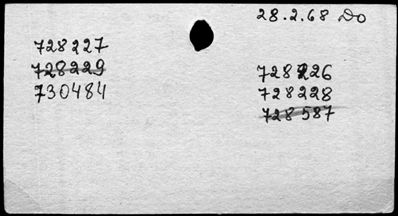 28.2.68 Do
728227
728229
730484
728226
728228
728587